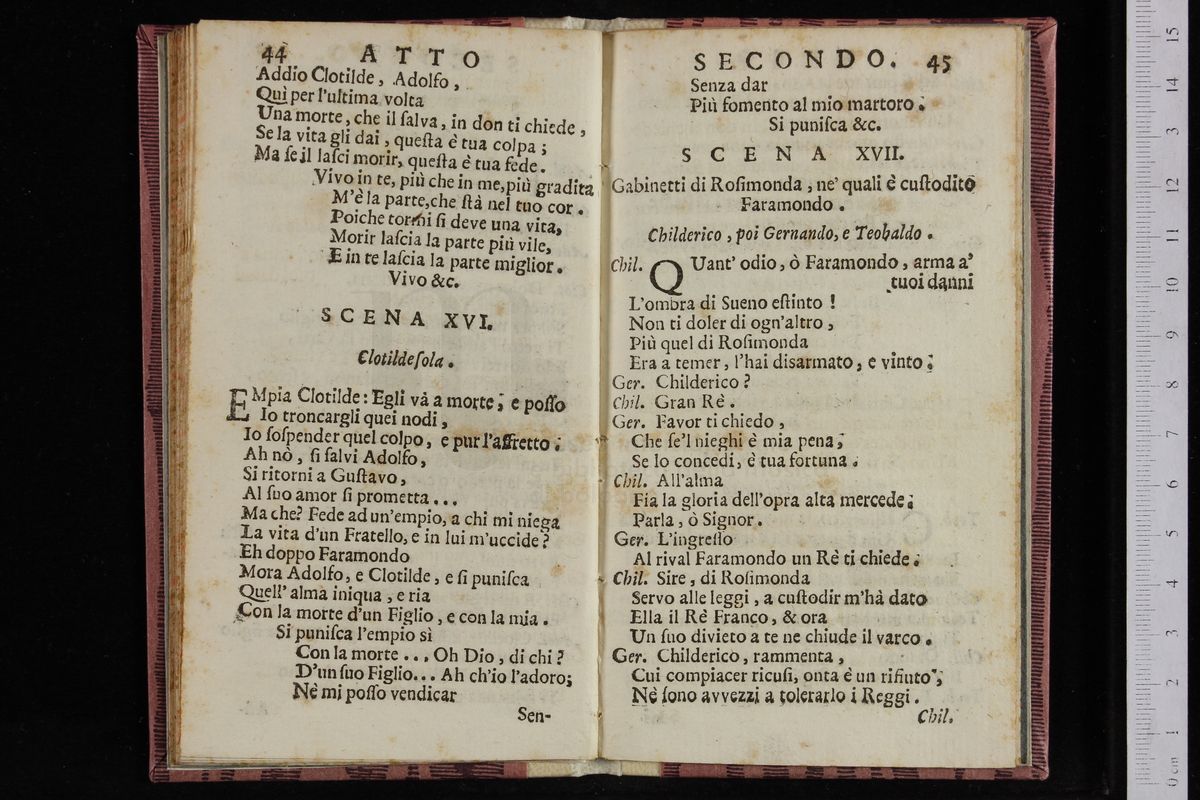 44 ATTO
Addio Clotilde, Adolfo,
Quì per l'ultima volta
Una morte, che il ſalva, in don ti chiede,
Se la vita gli dai, queſta è tua colpa;
Ma ſe il laſci morir, queſta è tua fede.
Vivo in te, più che in me, più gradita
M'è la parte, che ſtà nel tuo cor.
Poiche tormi ſi deve una vita,
Morir laſcia la parte più vile,
E in te laſcia la parte miglior.
Vivo &c.
SCENA XVI.
Clotilde ſola.
EMpia Clotilde: Egli và a morte; e poſſo
Io troncargli quei nodi,
Io ſoſpender quel colpo, e pur l'affretto:
Ah nò, ſi ſalvi Adolfo,
Si ritorni a Guſtavo,
Al ſuo amor ſi prometta...
Ma che? Fede ad un'empio, a chi mi niega
La vita d'un Fratello, e in lui m'uccide?
Eh doppo Faramondo
Mora Adolfo, e Clotilde, e ſi puniſca
Quell' alma iniqua, e ria
Con la morte d'un Figlio, e con la mia.
Si puniſca l'empio sì
Con la morte... Oh Dio, di chi?
D'un ſuo Figlio... Ah ch'io l'adoro;
Nè mi poſſo vendicar
Sen-
SECONDO. 45
Senza dar
Più fomento al mio martoro:
Si puniſca &c.
SCENA XVII.
Gabinetti di Roſimonda, ne' quali è cuſtodito
Faramondo.
Childerico, poi Gernando, e Teobaldo.
Chil. QUant' odio, ò Faramondo, arma a'
tuoi danni
L'ombra di Sueno eſtinto!
Non ti doler di ogn'altro,
Più quel di Roſimonda
Era a temer, l'hai disarmato, e vinto;
Ger. Childerico?
Chil. Gran Rè.
Ger. Favor ti chiedo,
Che ſe'l nieghi è mia pena;
Se lo concedi, è tua fortuna.
Chil. All'alma
Fia la gloria dell'opra alta mercede;
Parla, ò Signor.
Ger. L'ingreſſo
Al rival Faramondo un Rè ti chiede:
Chil. Sire, di Roſimonda
Servo alle leggi, a cuſtodir m'hà dato
Ella il Rè Franco, & ora
Un ſuo divieto a te ne chiude il varco.
Ger. Childerico, rammenta,
Cui compiacer ricuſi, onta è un rifiuto;
Nè ſono avvezzi a tolerarlo i Reggi.
Chil.
15
14
13
12
11
10
9
8
7
6
5
4
3
2
1
0 cm